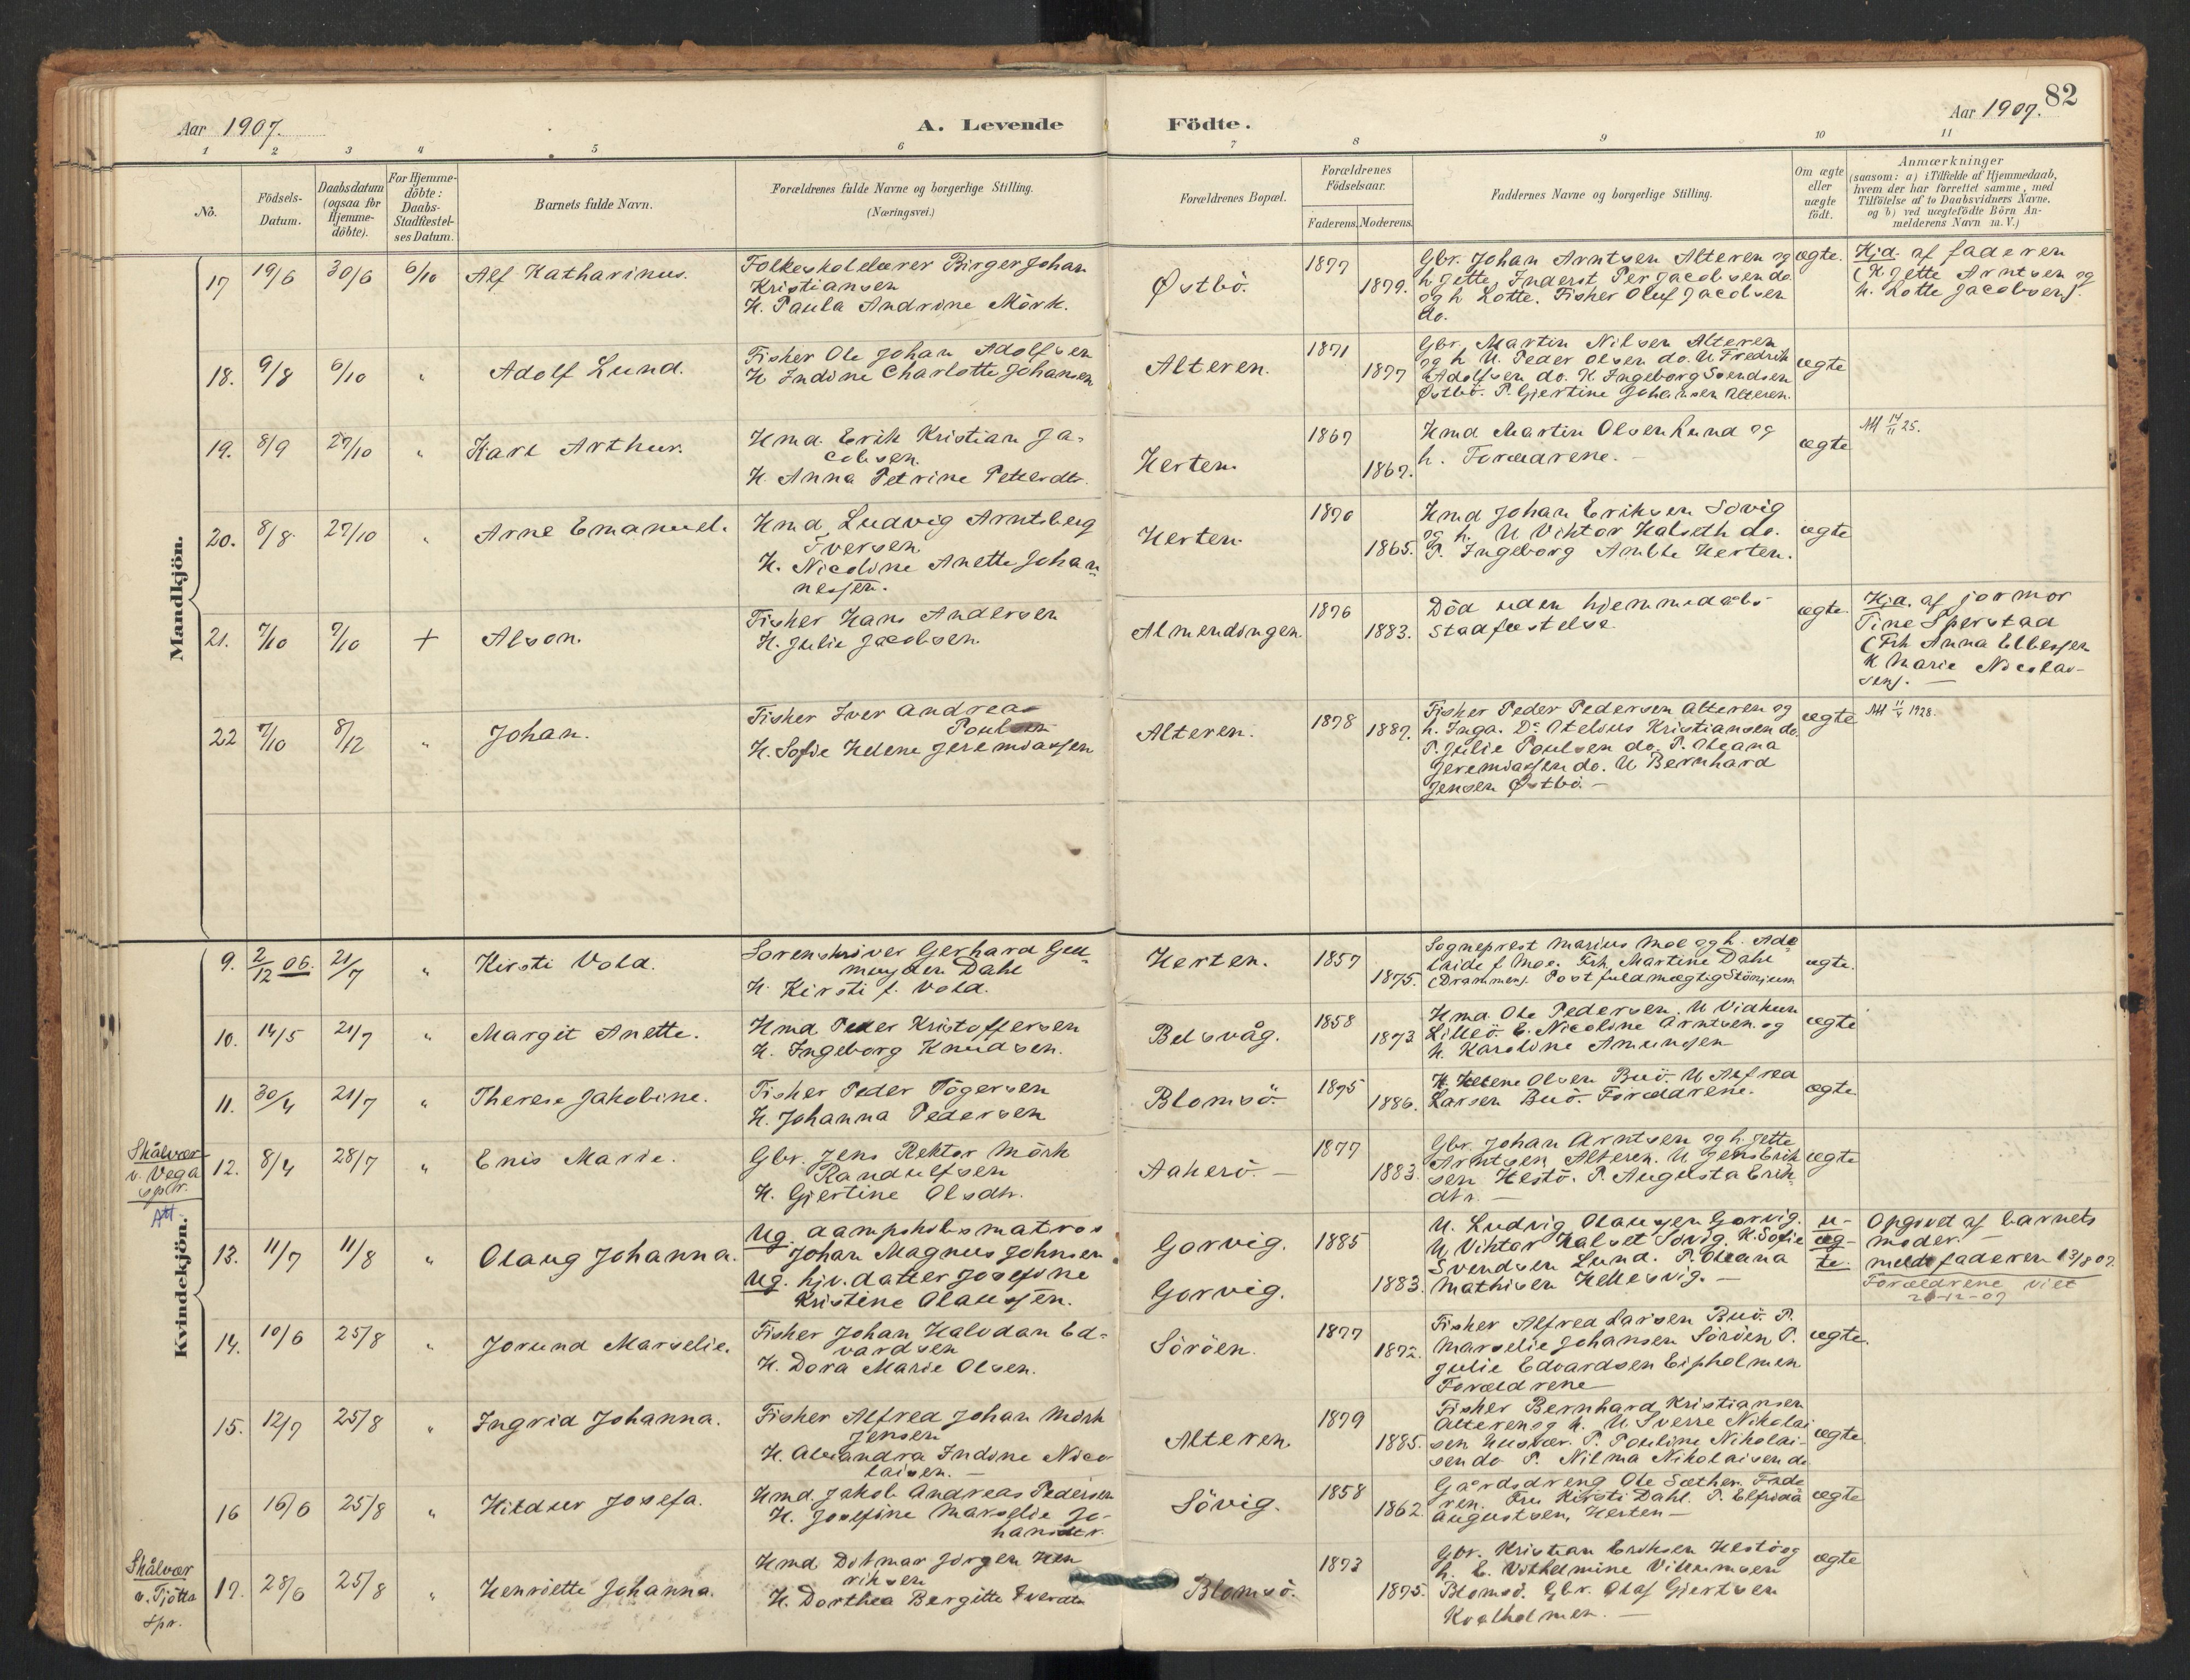 82
Aar 1907.
A. Levende Födte.
Aar 1907.
1 2 3 4 5 6 7 8 9 10 11
No.
Födsels-Datum.
Daabsdatum (ogsaa for Hjemme-döbte).
For Hjemme-döbte: Daabs-Stadfæstel-ses Datum.
Barnets fulde Navn.
Forældrenes fulde Navne og borgerlige Stilling.
(Næringsvei.)
Forældrenes Bopæl.
Forældrenes Födselsaar.
Faderens. Moderens.
Faddernes Navne og borgerlige Stilling.
Om ægte eller uægte födt.
Anmærkninger
(saasom: a) i Tilfælde af Hjemmedaab,
hvem der har forrettet samme, med
Tilföielse af to Daabsvidners Navne,
og b) ved uægtefödte Börn An-
melderens Navn m. V.)
Mandkjön.
17 19/6 30/6 6/10 Alf Katharinus.
Folkeskolelærer Birger Johan
Kristiansen
H. Paula Andrine Mörk.
Østbö. 1877 1879.
Gbr. Johan Arntsen Alteren og
h Jette, Inderst Per Jacobsen do
og h Lotte. Fisker Oluf Jacobsen
do.
ægte.
Hjd. af faderen
(K. Jette Arntsen og
h. Lotte Jacobsen).
18. 9/8 6/10 " Adolf Lund.
Fisker Ole Johan Adolfsen
H Indine Charlotte Johansen
Alteren. 1871 1877
Gbr. Martin Nilsen Alteren
og h U. Peder Olsen do. U Fredrik
Adolfsen do. K. Ingeborg Svendsen
Østbö. P. Gjertine Johansen Alteren.
ægte
19. 8/9 27/10 " Karl Arthur.
Hmd. Erik Kristian Ja-
cobsen.
H. Anna Petrine Petersdtr.
Herten. 1867 1867.
Hmd Martin Olsen Lund og
h. Forældrene. -
ægte
Att 14/11 25.
20. 8/8 27/10 " Arne Emanuel.
Hmd. Ludvig Arntsberg
Iversen.
H. Nicoline Anette Johan-
nessen.
Herten. 1870 1865.
Hmd Johan Eriksen Sövig
og h. U Viktor Halseth do.
P. Ingeborg Amble Herten.
ægte
21. 7/10 7/10 + Alson.
Fisker Hans Andersen
H. Julie Jacobsen.
Almendingen. 1876 1883.
Död uden hjemmedaabs-
stadfæstelse.
ægte.
Hjd. af jormor
Tine Sperstad
(Frk Anna Ellessen
K Marie Nicolai-
sen). —
22 7/10 8/12 " Johan.
Fisker Iver Andreas
Poulsen
H. Sofie Helene Jeremiassen
Alteren. 1878 1887.
Fisker Peder Pedersen Alteren og
h. Inga. D° Otelius Kristiansen do.
P. Julie Poulsen do. P. Oleana
Jeremiassen do. U Bernhard
Jensen Østbö. —
ægte
Att 11/4 1928.
Kvindekjön.
9. 2/12 06. 21/7 " Kirsti Vold.
Sorenskriver Gerhard
Dahl
H. Kirsti f. Vold.
Herten. 1857 1875.
Sogneprest Marius Moe og h. Ade-
laide f Moe. Frk. Martine Dahl
(Drammen). Postfuldmægtig
ægte.
10. 14/5 21/7 " Margit Anette.
Hmd Peder Kristoffersen
H. Ingeborg Knudsen.
Belsvåg. 1858 1873
Hmd. Ole Pedersen. U Vidkun
Lilleö. E. Nicoline Arntsen og
h. Karoline Amundsen
ægte
11. 30/4 21/7 " Therese Jakobine.
Fisker Peder Tögersen
H. Johanna Pedersen
Blomsö. 1875 1886.
K. Helene Olsen Buö. U Alfred
Larsen Buö. Forældrene.
ægte.
Skålvær
v. Vega
spr.
Att
12. 8/4 28/7 " Enis Marie.
Gbr. Jens Rektor Mörk
Randulfsen
H. Gjertine Olsdtr.
Aakerö — 1877 1883.
Gbr. Johan Arntsen og h. Jette
Arntsen Alteren. U Jens Erik-
sen Hestö. P. Augusta Erik-
dtr. —
ægte
13. 11/7 11/8 " Olaug Johanna.
Ug. dampskibsmatros
Johan Magnus Johnsen
Ug. hjv. datter Josefine
Kristine Olaussen.
Gorvig. 1885
Gorvig. 1883.
U. Ludvig Olaussen Gorvig.
U Viktor Halset Sövig. K. Sofie
Svendsen Lund. P. Oleana
Mathisen Hellesvig. —
u-
æg-
te.
Opgivet af barnets
moder. -
meldt faderen 13/8 07.
Forældrene viet
26-12-07
14. 10/6 25/8 " Jorund Marselie.
Fisker Johan Halvdan Ed-
vardsen
H. Dora Marie Olsen.
Söröen. 1877 1872.
Fisker Alfred Larsen Buö. P.
Marselie Johansen Söröen P.
Julie Edvardsen Eipholmen
Forældrene
ægte.
15. 12/7 25/8 " Ingrid Johanna.
Fisker Alfred Johan Mörk
Jensen
H. Alexandra Indine Nico-
laisen. —
Alteren. 1879 1885.
Fisker Bernhard Kristiansen
Alteren og h. U Sverre Nikolai-
sen Husvær. P. Pauline Nikolai-
sen do P. Nilma Nikolaisen do
ægte
16 16/6 25/8 " Hildur Josefa.
Hmd. Jakob Andreas Pedersen
H. Josefine Marselie Jo-
hansdtr.
Sövig. 1858 1862.
Gårdsdreng Ole Sæther. Fade-
ren. Fru Kirsti Dahl. P. Elfrida
Augustsen, Herten —
ægte
Skålvær
v. Tjötta
spr.
17. 28/6 25/8 " Henriette Johanna.
Hmd Ditmar Jörgen Hen
riksen
H. Dorthea Bergitte
Blomsö. 1873 1875.
Gbr. Kristian Eriksen Hestö og
h. E. Vilhelmine Villumsen
Blomsö. Gbr. Olaf Gjertsen
Kvalholmen. —
ægte